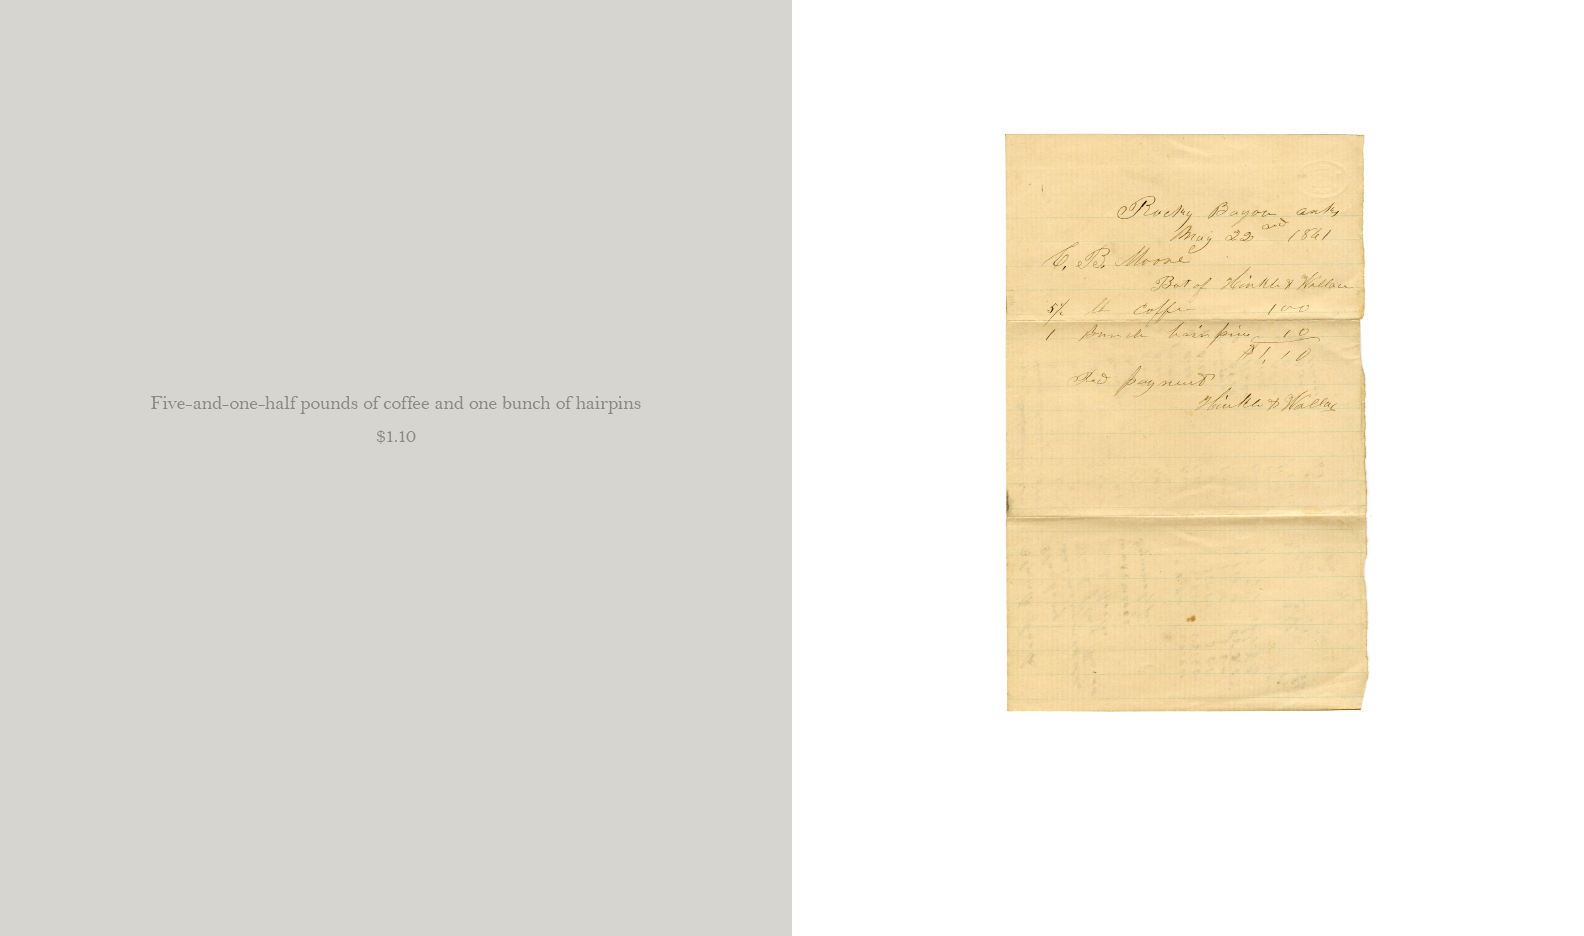 Five-and-one-half pounds of coffee and one bunch of hairpins
$1.10
Rocky Bayou arks
May 22nd 1861
C. B. Moore
Bot of Hinkle & Wallace
5½ lb coffe 100
1 bunch hairpins 10
$1,10
Recd payment
Hinkle & Wallac